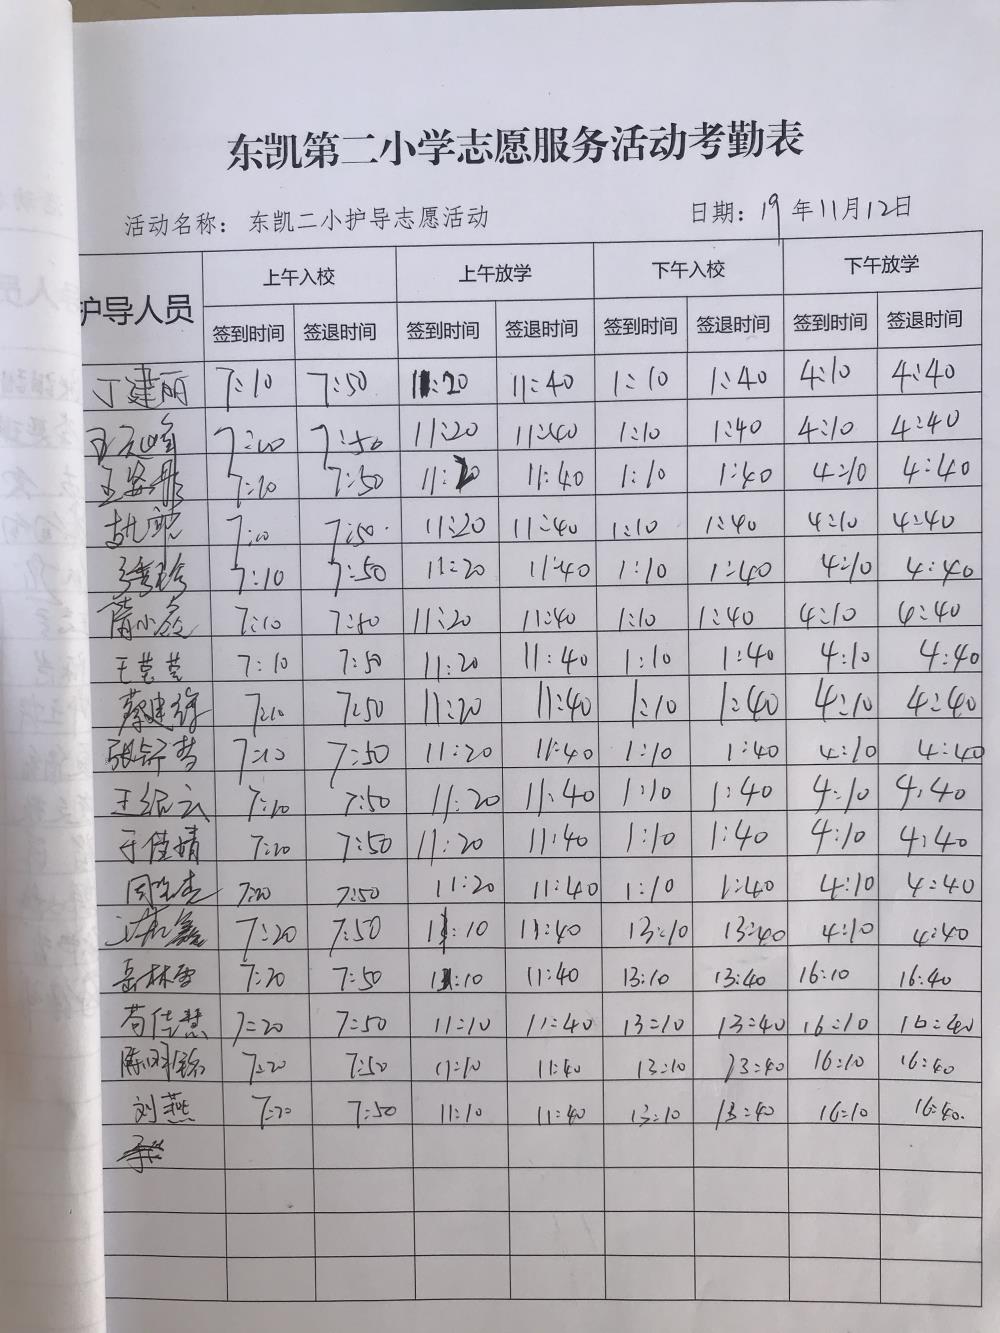 东凯第二小学志愿服务活动考勤表
活动名称：东凯二小护导志愿活动 日期：19年11月12日
护导人员 上午入校 上午放学 下午入校 下午放学
签到时间 签退时间 签到时间 签退时间 签到时间 签退时间 签到时间 签退时间
丁建丽 7:10 7:50 11:20 11:40 1:10 1:40 4:10 4:40
7:50 11:20 11:40 1:10 1:40 4:10 4:40
7:50 11:20 11:40 1:10 1:40 4:10 4:40
7:50 11:20 11:40 1:10 1:40 4:10 4:40
7:10 7:50 11:20 11:40 1:10 1:40 4:10 4:40
7:10 7:50 11:20 11:40 1:10 1:40 4:10 4:40
王莹莹 7:10 7:50 11:20 11:40 1:10 1:40 4:10 4:40
7:10 7:50 11:20 11:40 1:10 1:40 4:10 4:40
7:10 7:50 11:20 11:40 1:10 1:40 4:10 4:40
7:50 11:20 11:40 1:10 1:40 4:10 4:40
于佳婧 7:20 7:50 11:20 11:40 1:10 1:40 4:10 4:40
7:20 7:50 11:20 11:40 1:10 1:40 4:10 4:40
7:20 7:50 11:10 11:40 13:10 13:40 4:10 4:40
岳林雪 7:20 7:50 11:10 11:40 13:10 13:40 16:10 16:40
苟佳慧 7:20 7:50 11:10 11:40 13:10 13:40 16:10 16:40
7:20 7:50 11:10 11:40 13:10 13:40 16:10 16:40
刘燕 7:20 7:50 11:10 11:40 13:10 13:40 16:10 16:40.